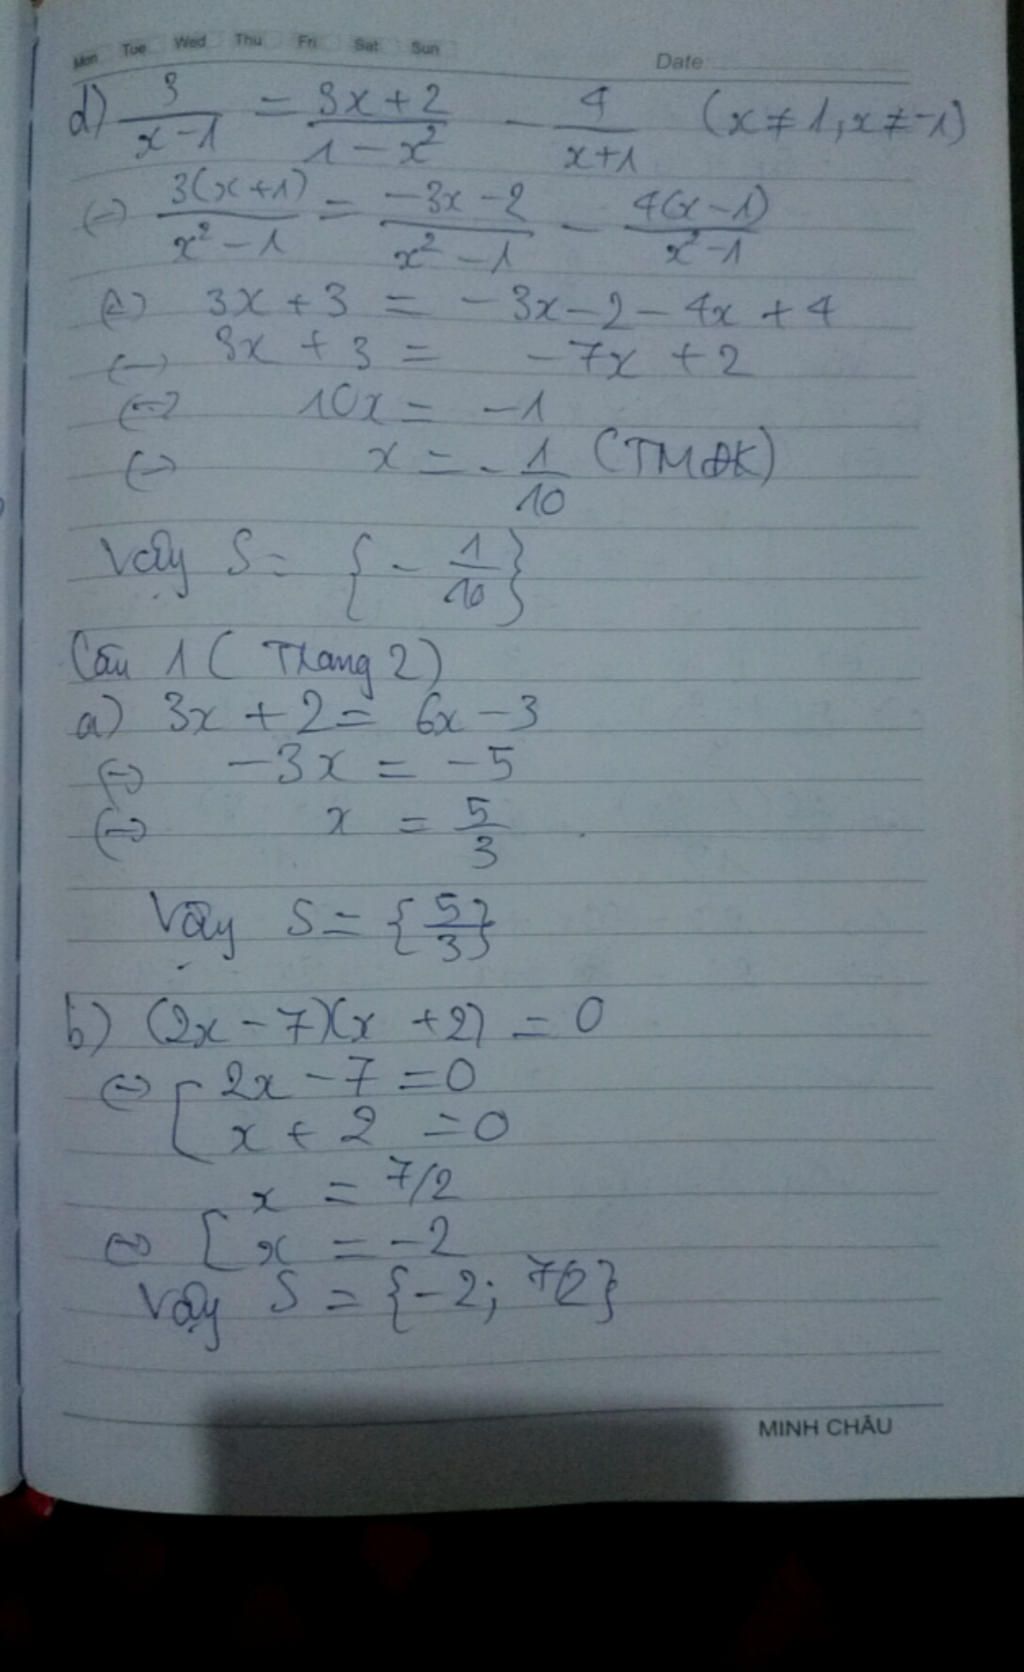 Mon Tue Wed Thu Fri Sat Sun Date
d) 3/(x-1) = (3x+2)/(1-x²) - 4/(x+1) (x≠1, x≠-1)
(-) 3(x+1)/(x²-1) = (-3x-2)/(x²-1) - 4(x-1)/(x²-1)
(=) 3x+3 = -3x-2-4x+4
(-) 3x+3 = -7x+2
⇔ 10x = -1
(-) x = -1/10 (TMĐK)
Vậy S = {-1/10}
Câu 1 (Thang 2)
a) 3x+2 = 6x-3
⇔ -3x = -5
⇔ x = 5/3
Vậy S = {5/3}
b) (2x-7)(x+2) = 0
⇔ [ 2x-7=0
x+2=0
x = 7/2
⇔ [ x = -2
Vậy S = {-2; 7/2}
MINH CHÂU